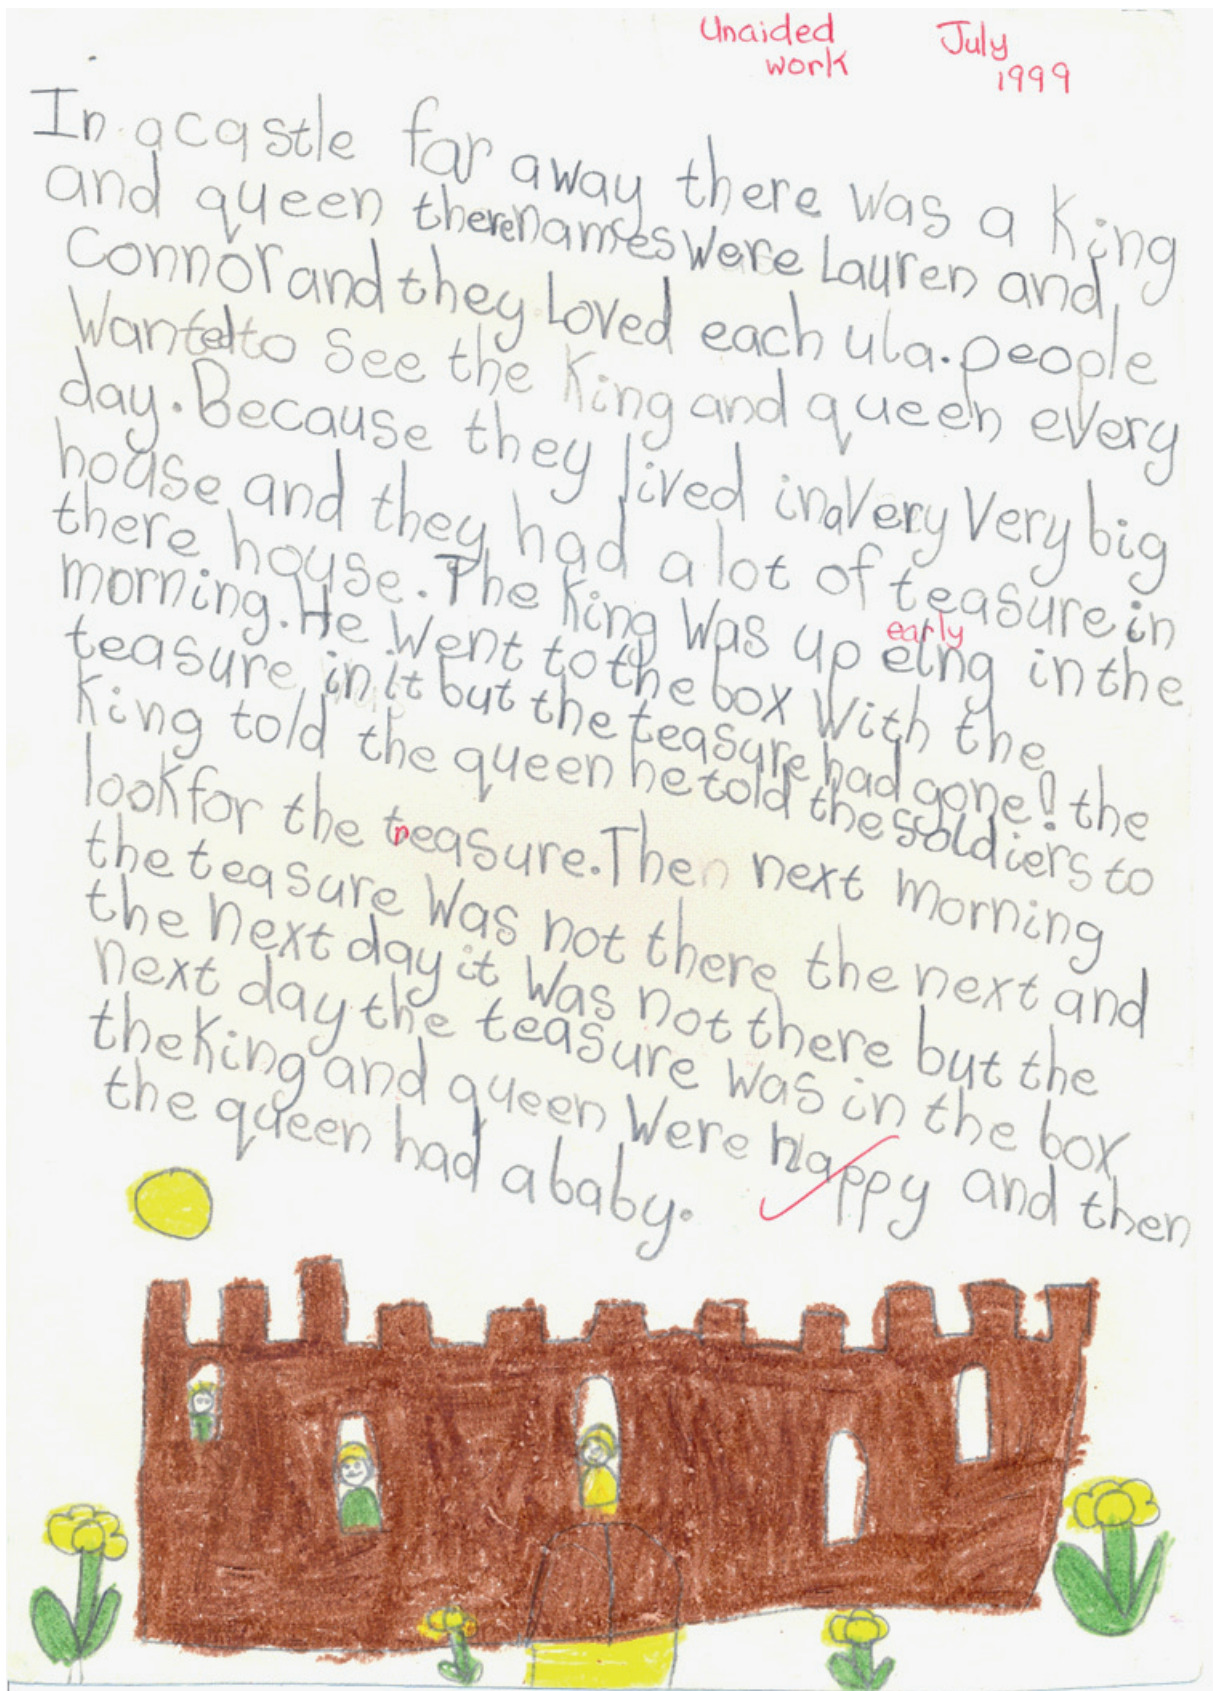 Unaided July
work 1999
In a castle far away there was a King
and queen there names were Lauren and
Connor and they Loved each ula. people
Wanted to see the King and queen every
day. Because they lived in a Very Very big
house and they had a lot of teasure in
there house. The King Was up elng in the
early
morning. He Went to the box With the
teasure in it but the teasure had gone! the
King told the queen he told the soldiers to
look for the treasure. Then next morning
the teasure Was not there the next and
the next day it Was not there but the
next day the teasure was in the box
the King and queen Were happy and then
the queen had a baby.